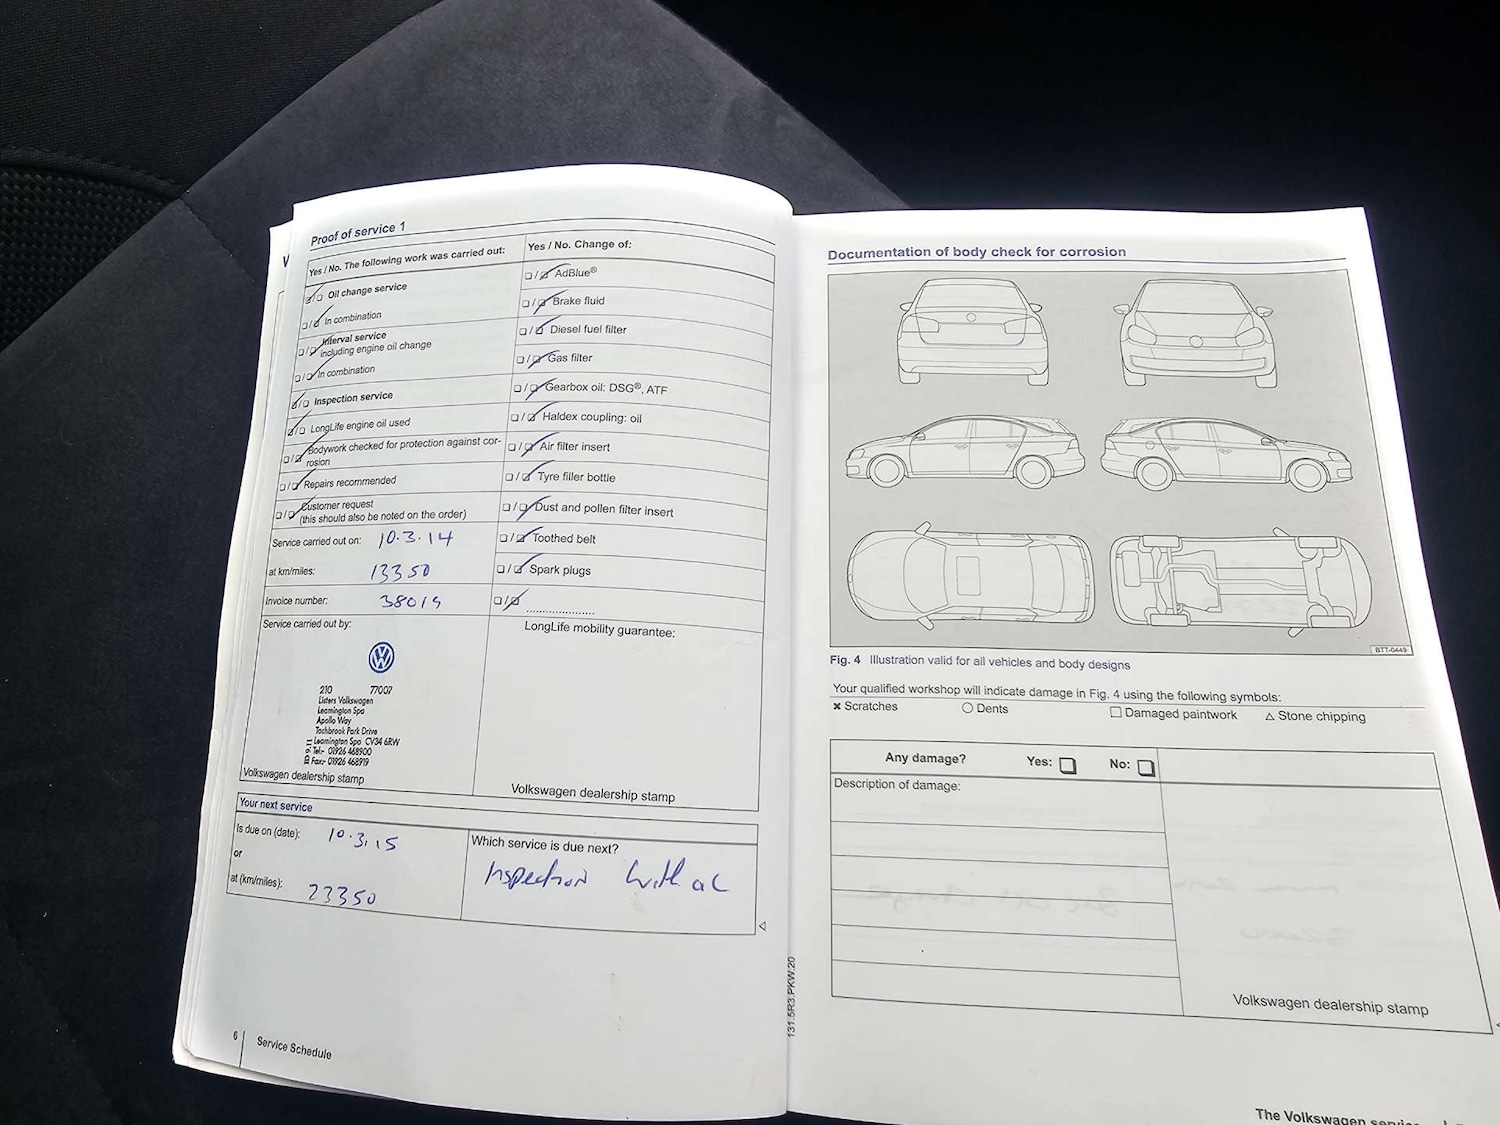 Proof of service 1
Yes / No. The following work was carried out:
Oil change service
In combination
Interval service
including engine oil change
In combination
Inspection service
LongLife engine oil used
Bodywork checked for protection against cor-
rosion
Repairs recommended
Customer request
(this should also be noted on the order)
Service carried out on: 10.3.14
at km/miles: 13350
Invoice number: 38019
Service carried out by:
210 77007
Listers Volkswagen
Leamington Spa
Apollo Way
Tachbrook Park Drive
Leamington Spa CV34 6RW
Tel:- 01926 468900
Fax:- 01926 468919
Volkswagen dealership stamp
Yes / No. Change of:
AdBlue®
Brake fluid
Diesel fuel filter
Gas filter
Gearbox oil: DSG®, ATF
Haldex coupling: oil
Air filter insert
Tyre filler bottle
Dust and pollen filter insert
Toothed belt
Spark plugs
LongLife mobility guarantee:
Volkswagen dealership stamp
Your next service
Is due on (date): 10.3.15
or
at (km/miles): 23350
Which service is due next?
Inspection with oc
6 Service Schedule
131.5R3.PKW.20
Documentation of body check for corrosion
BTT-0449
Fig. 4 Illustration valid for all vehicles and body designs
Your qualified workshop will indicate damage in Fig. 4 using the following symbols:
Scratches Dents Damaged paintwork Stone chipping
Any damage? Yes: No:
Description of damage:
Volkswagen dealership stamp
The Volkswagen